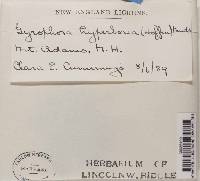 NEW ENGLAND LICHENS.
Gyrophora hyperborea (Hoffm)
Mt. Adams, N. H.
Clara E. Cummings 8/6/89
HERBARIUM OF
LINCOLN W. RIDDLE